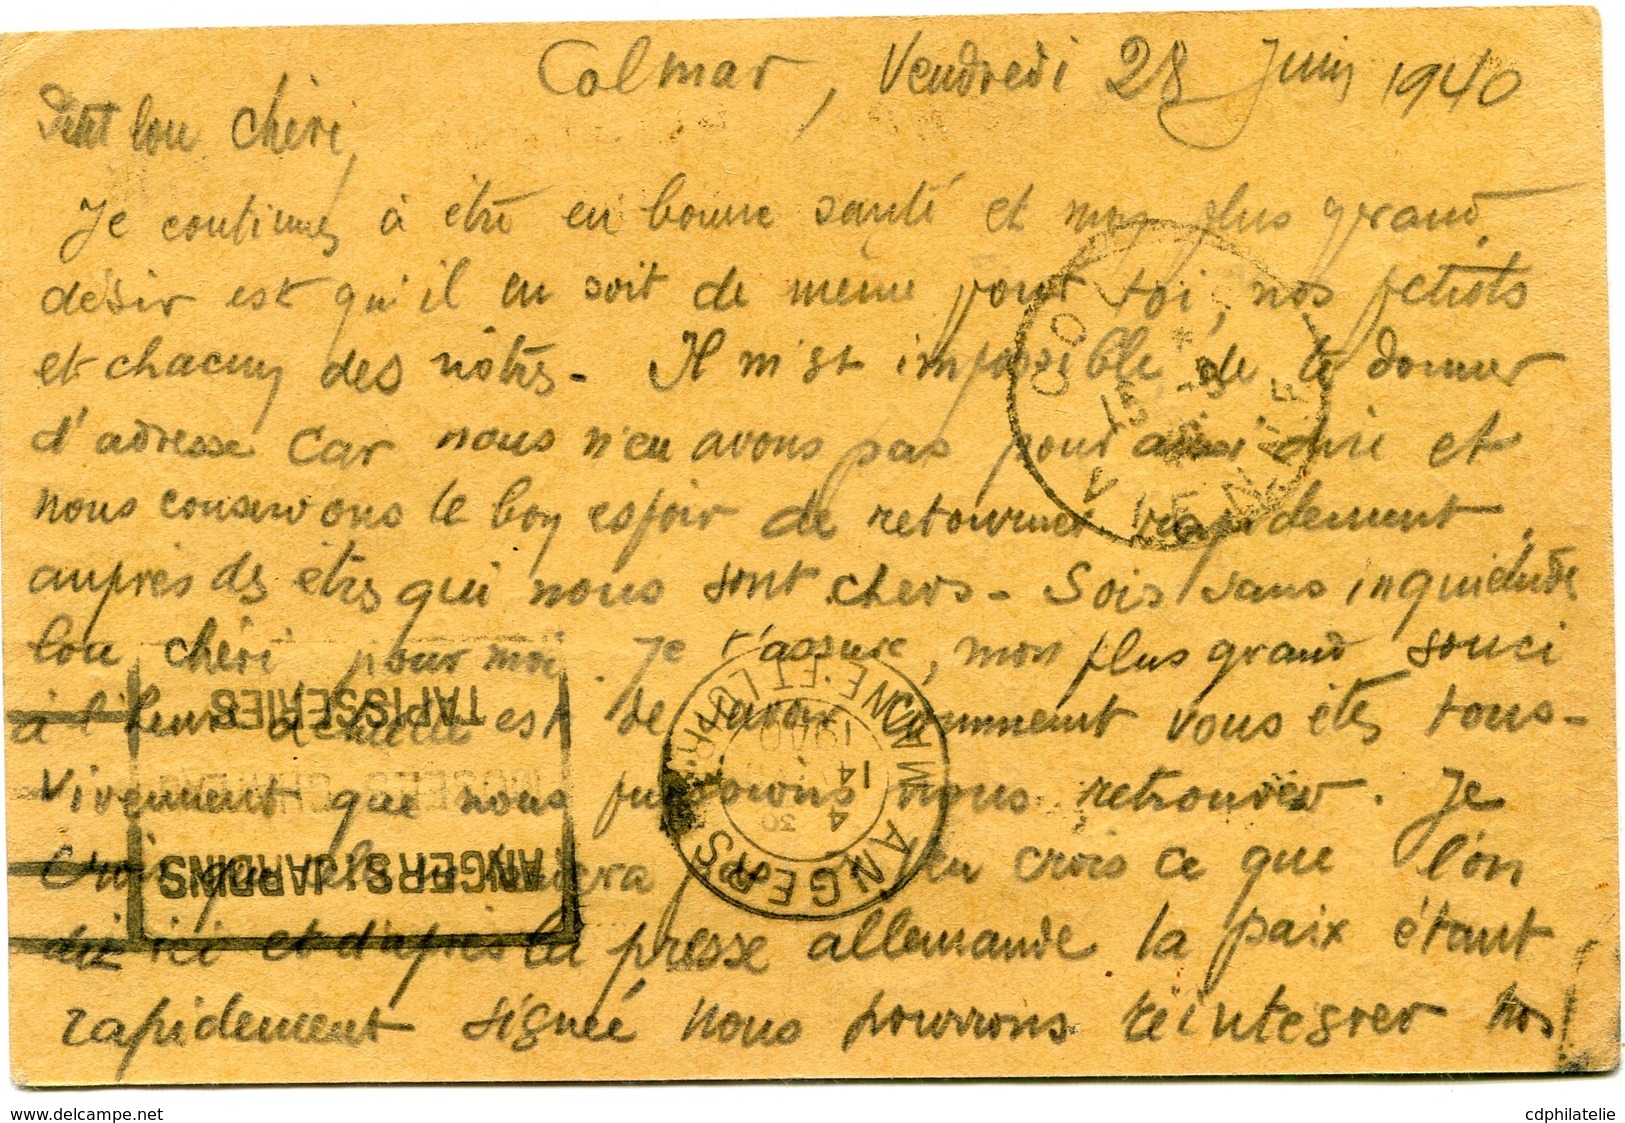 Colmar, Vendredi 28 Juin 1940
Petit lou chéri,
Je continues à être en bonne santé et mon plus grand
désir est qu'il en soit de même pour toi, nos petiots
et chacun des nôtres. Il m'est impossible de te donner
d'adresse car nous n'en avons pas pour ainsi dire et
nous conservons le bon espoir de retourner rapidement
auprès des êtres qui nous sont chers. Sois sans inquiétude
lou chéri pour moi. Je t'assure, mon plus grand souci
à l'heure actuelle est de savoir comment vous êtes tous.
Vivement que nous puissions nous retrouver. Je
crois que cela ne pas j'en crois ce que l'on
dit ici et d'après la presse allemande la paix étant
rapidement signée nous pourrons réintégrer nos
COL
15 - 8
VIENNE
TAPISSERIES
ANGERS: JARDINS
ANGERS
MAINE-ET-LOIRE
14
4
30
1940
cdphilatelie
www.delcampe.net